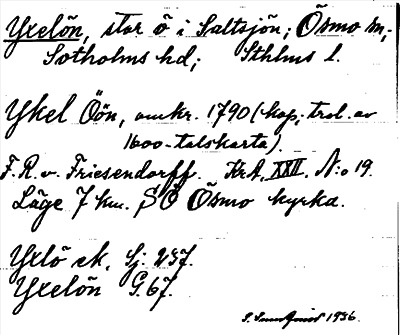 Yxelön, stor ö i Saltsjön; Ösmo sn,
Sotholms hd; Sthlms l.
Ykel Öön, omkr. 1790 (kop. trol. av
1600-talskarta).
F. R. v. Friesendorff. KrA, XXII. N:o 19.
Läge 7 km. SO Ösmo kyrka.
Yxlö ek. Sj. 237.
Yxelön G. 67.
1936.